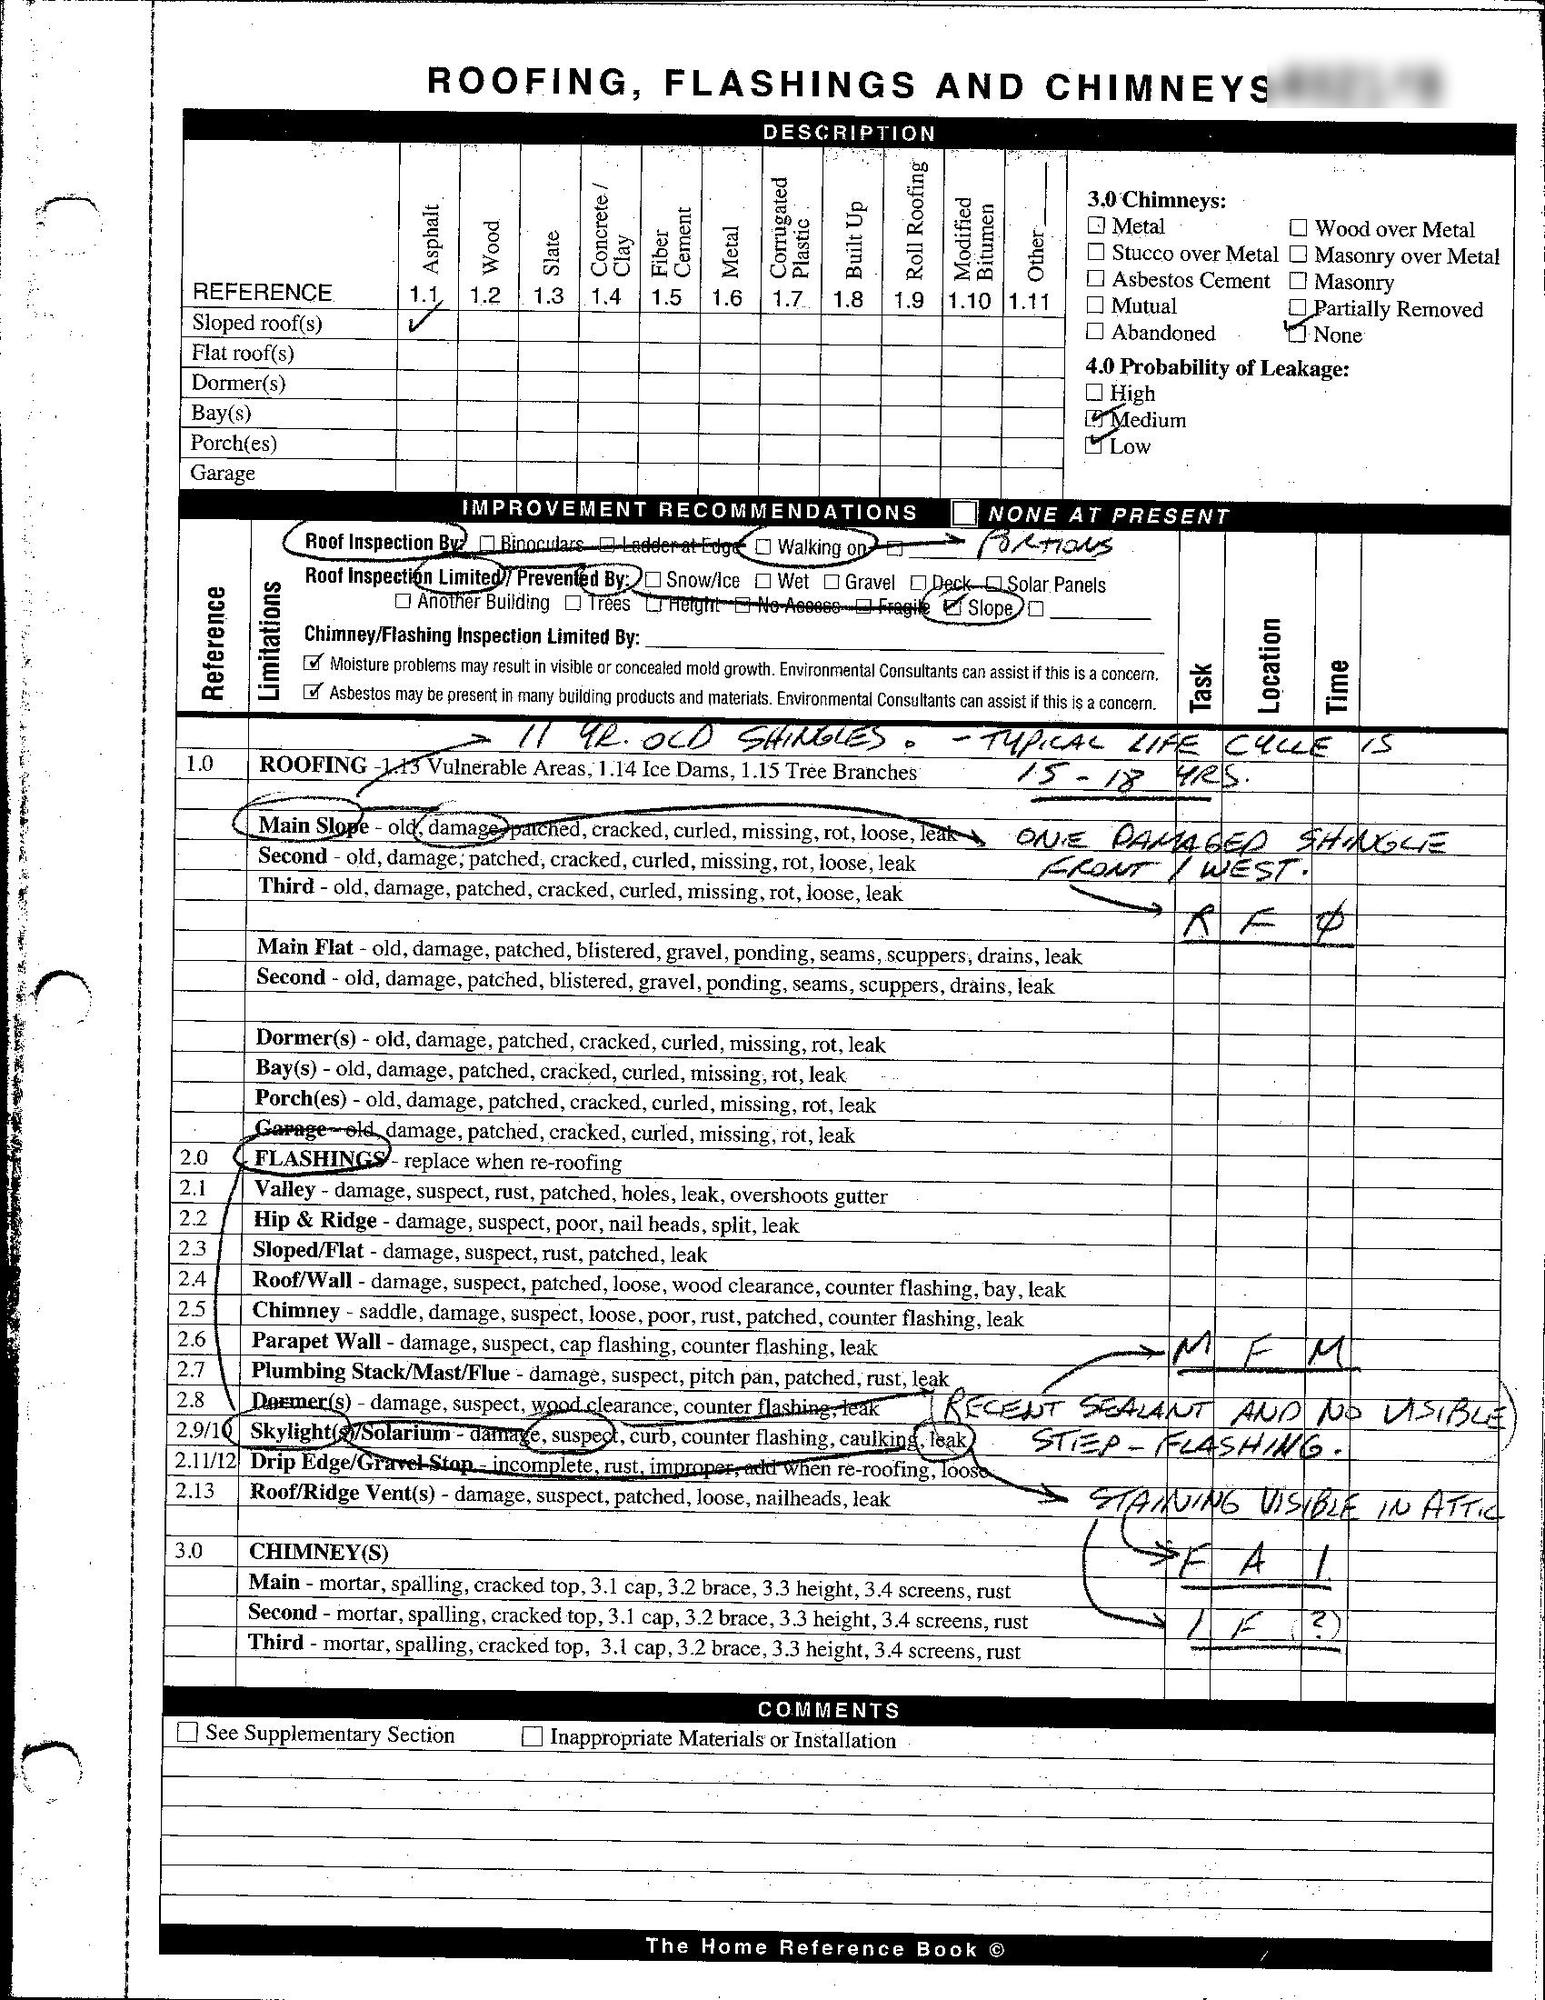 ROOFING, FLASHINGS AND CHIMNEYS
DESCRIPTION
REFERENCE
Asphalt 1.1
Wood 1.2
Slate 1.3
Concrete / Clay 1.4
Fiber Cement 1.5
Metal 1.6
Corrugated Plastic 1.7
Built Up 1.8
Roll Roofing 1.9
Modified Bitumen 1.10
Other 1.11
Sloped roof(s) ✓
Flat roof(s)
Dormer(s)
Bay(s)
Porch(es)
Garage
3.0 Chimneys:
☐ Metal ☐ Wood over Metal
☐ Stucco over Metal ☐ Masonry over Metal
☐ Asbestos Cement ☐ Masonry
☐ Mutual ☐ Partially Removed
☐ Abandoned ☑ None
4.0 Probability of Leakage:
☐ High
☑ Medium
☑ Low
IMPROVEMENT RECOMMENDATIONS ☐ NONE AT PRESENT
Reference
Limitations
Roof Inspection By: ☐ Binoculars ☐ Ladder at Edge ☐ Walking on ☐ PORTIONS
Roof Inspection Limited/ Prevented By: ☐ Snow/Ice ☐ Wet ☐ Gravel ☐ Deck ☐ Solar Panels
☐ Another Building ☐ Trees ☐ Height ☐ No Access ☐ Fragile ☑ Slope ☐
Chimney/Flashing Inspection Limited By:
☑ Moisture problems may result in visible or concealed mold growth. Environmental Consultants can assist if this is a concern.
☑ Asbestos may be present in many building products and materials. Environmental Consultants can assist if this is a concern.
Task
Location
Time
11 YR. OLD SHINGLES. - TYPICAL LIFE CYCLE IS
1.0 ROOFING -1.13 Vulnerable Areas, 1.14 Ice Dams, 1.15 Tree Branches 15-18 YRS.
Main Slope - old, damage, patched, cracked, curled, missing, rot, loose, leak ONE DAMAGED SHINGLE
Second - old, damage, patched, cracked, curled, missing, rot, loose, leak FRONT / WEST.
Third - old, damage, patched, cracked, curled, missing, rot, loose, leak
R F ∅
Main Flat - old, damage, patched, blistered, gravel, ponding, seams, scuppers, drains, leak
Second - old, damage, patched, blistered, gravel, ponding, seams, scuppers, drains, leak
Dormer(s) - old, damage, patched, cracked, curled, missing, rot, leak
Bay(s) - old, damage, patched, cracked, curled, missing, rot, leak
Porch(es) - old, damage, patched, cracked, curled, missing, rot, leak
Garage - old, damage, patched, cracked, curled, missing, rot, leak
2.0 FLASHINGS - replace when re-roofing
2.1 Valley - damage, suspect, rust, patched, holes, leak, overshoots gutter
2.2 Hip & Ridge - damage, suspect, poor, nail heads, split, leak
2.3 Sloped/Flat - damage, suspect, rust, patched, leak
2.4 Roof/Wall - damage, suspect, patched, loose, wood clearance, counter flashing, bay, leak
2.5 Chimney - saddle, damage, suspect, loose, poor, rust, patched, counter flashing, leak
2.6 Parapet Wall - damage, suspect, cap flashing, counter flashing, leak M F M
2.7 Plumbing Stack/Mast/Flue - damage, suspect, pitch pan, patched, rust, leak
2.8 Dormer(s) - damage, suspect, wood clearance, counter flashing, leak (RECENT SEALANT AND NO VISIBLE)
2.9/10 Skylight(s)/Solarium - damage, suspect, curb, counter flashing, caulking, leak STEP-FLASHING.
2.11/12 Drip Edge/Gravel Stop - incomplete, rust, improper, add when re-roofing, loose
2.13 Roof/Ridge Vent(s) - damage, suspect, patched, loose, nailheads, leak STAINING VISIBLE IN ATTIC
3.0 CHIMNEY(S) F A 1
Main - mortar, spalling, cracked top, 3.1 cap, 3.2 brace, 3.3 height, 3.4 screens, rust
Second - mortar, spalling, cracked top, 3.1 cap, 3.2 brace, 3.3 height, 3.4 screens, rust I F (?)
Third - mortar, spalling, cracked top, 3.1 cap, 3.2 brace, 3.3 height, 3.4 screens, rust
COMMENTS
☐ See Supplementary Section ☐ Inappropriate Materials or Installation
The Home Reference Book ©